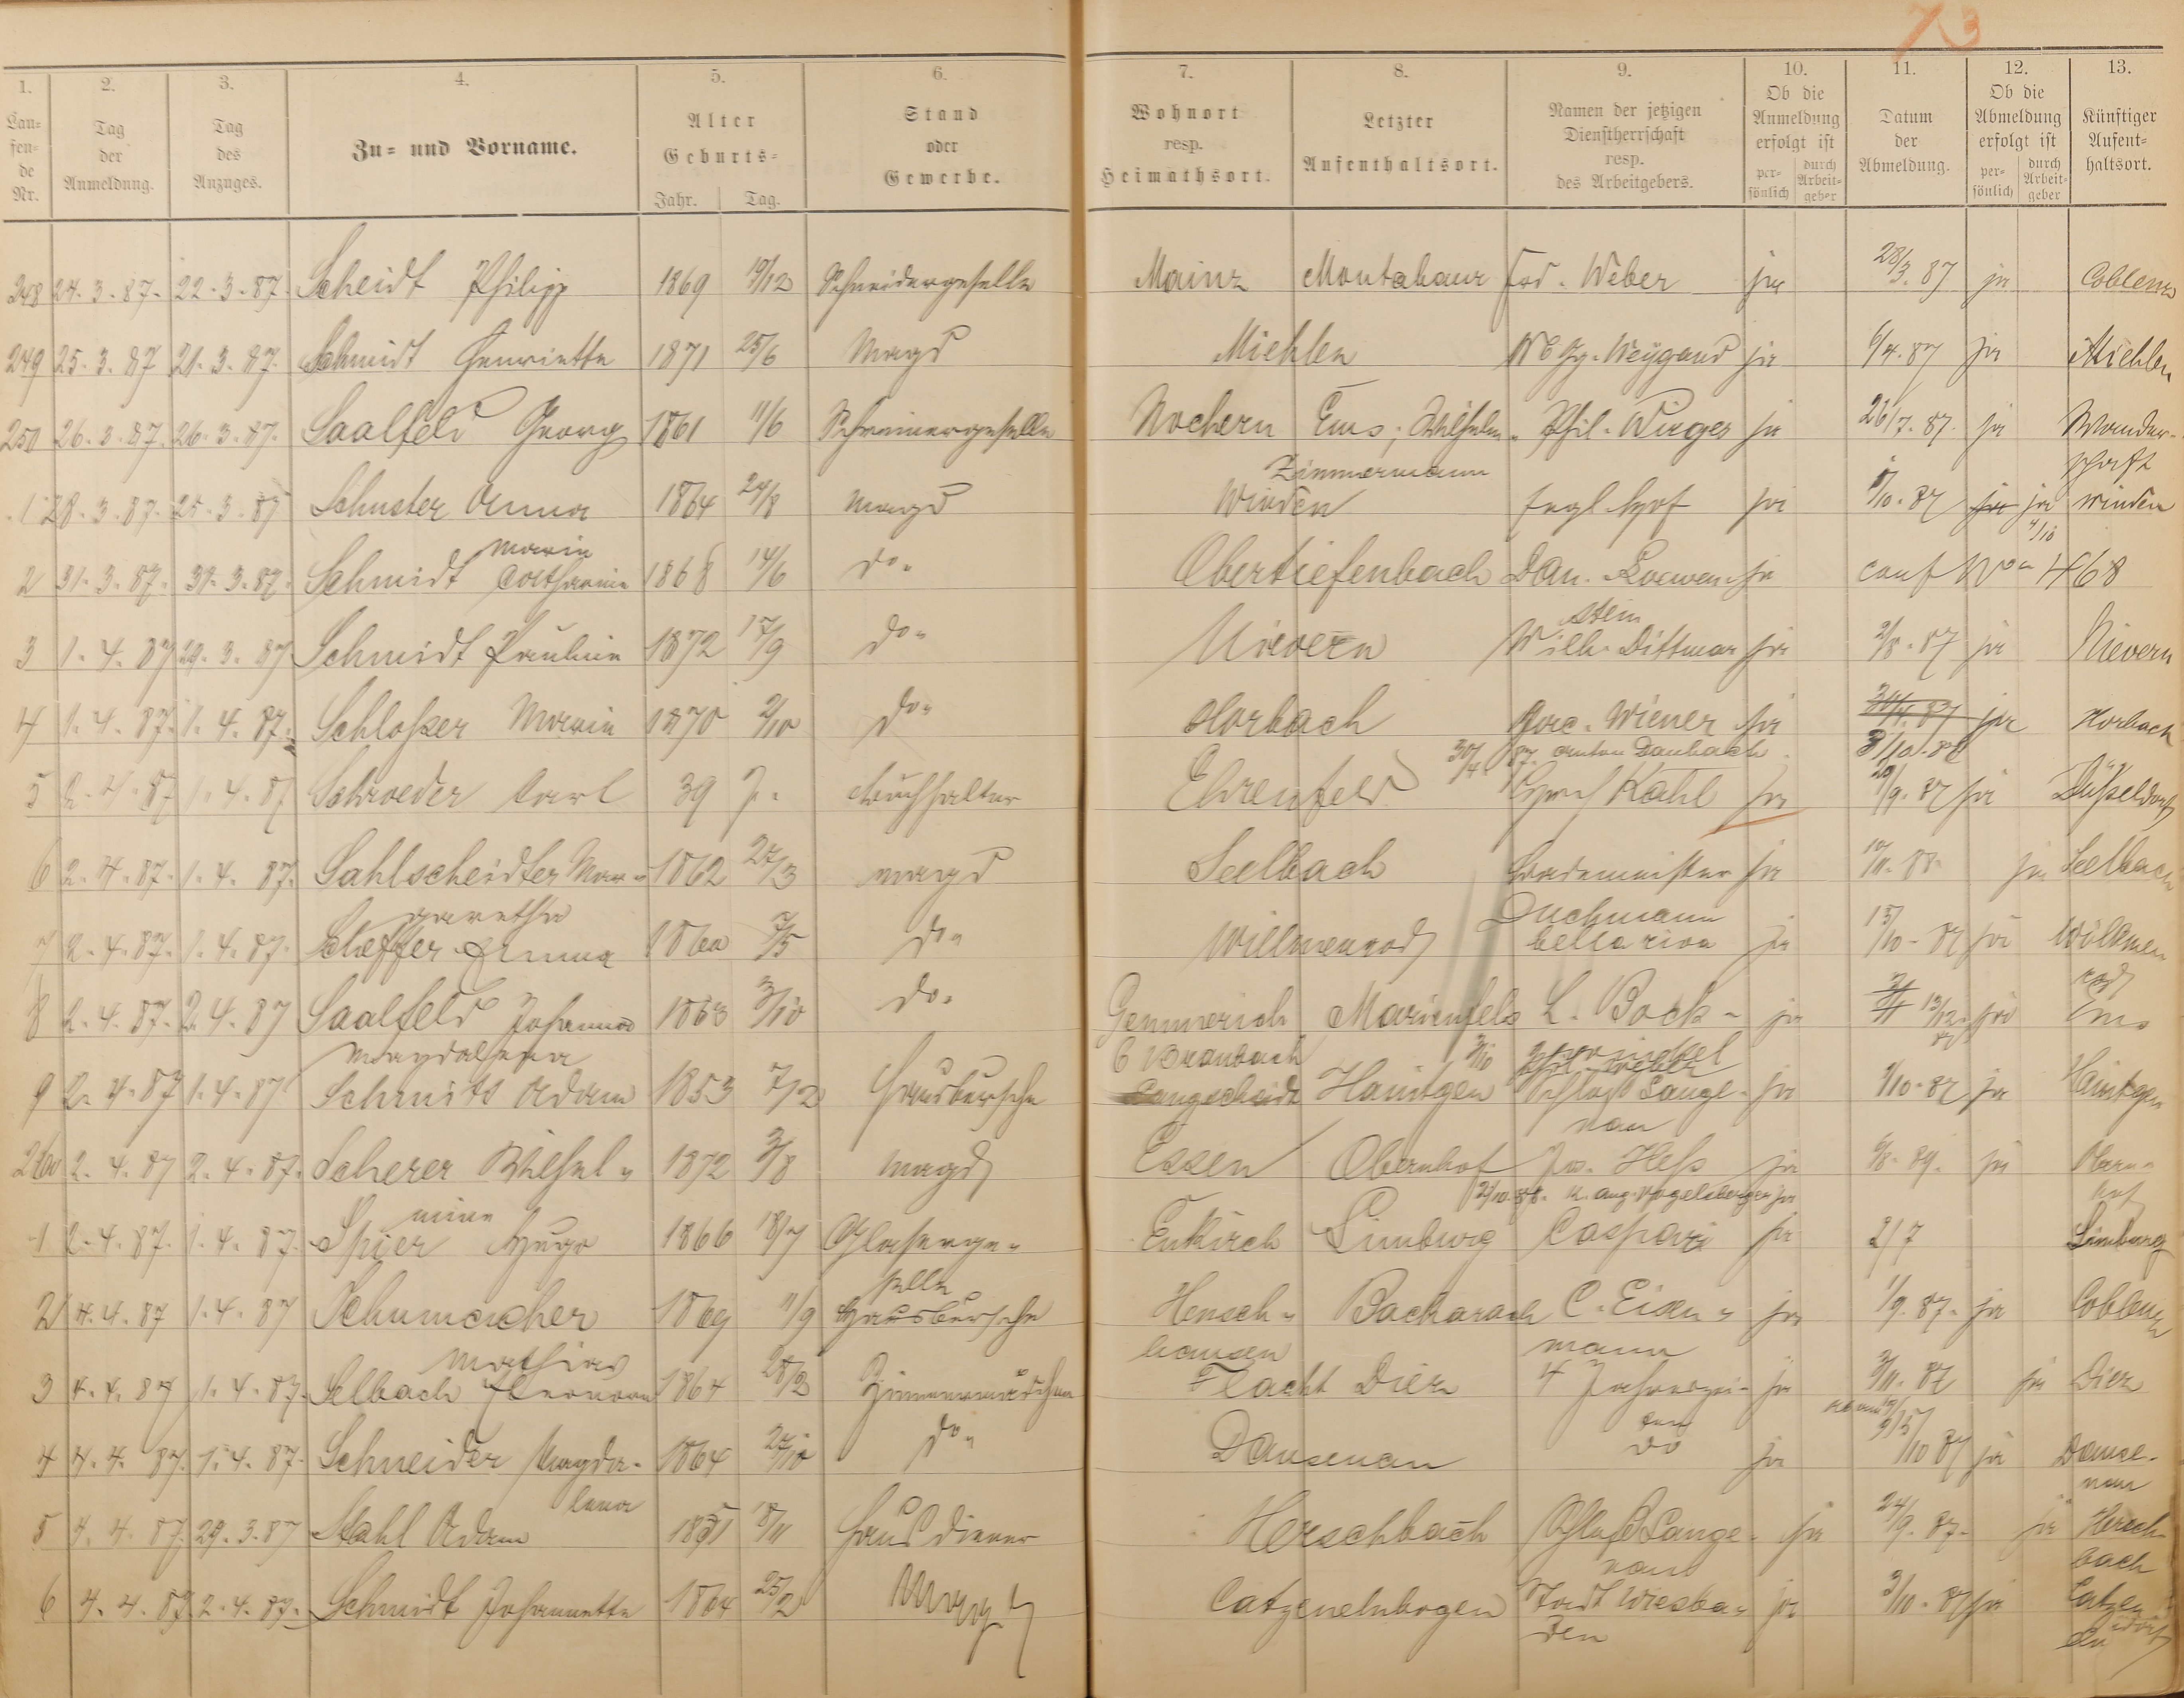 73
1. 2. 3. 4. 5. 6. 7. 8. 9. 10. 11. 12. 13.
Lau=
fen=
de
Nr.
Tag
der
Anmeldung.
Tag
des
Anzuges.
Zu= und Vorname.
Alter
Geburts=
Jahr. Tag.
Stand
oder
Gewerbe.
Wohnort
resp.
Heimathsort.
Letzter
Aufenthaltsort.
Namen der jetzigen
Dienstherrschaft
resp.
des Arbeitgebers.
Ob die
Anmeldung
erfolgt ist
per=
sönlich
durch
Arbeit=
geber
Datum
der
Abmeldung.
Ob die
Abmeldung
erfolgt ist
per=
sönlich
durch
Arbeit=
geber
Künftiger
Aufent=
haltsort.
248 24.3.87. 22.3.87. Scheidt Philipp 1869 19/12 Schneidergeselle Mainz Montabaur Weber ja 28/3.87 ja Coblenz
249 25.3.87 21.3.87. Schmidt Henriette 1871 25/6 Magd Miehlen Weygand ja 6/4.87 ja Miehlen
250 26.3.87. 26.3.87. Saalfeld Georg 1861 11/6 Schreinergeselle Nochern Ems, Wilhelm- Phil. Wieges ja 26/7.87. ja Wander-
Zimmermann schaft
1 28.3.87. 25.3.87 Schuster Anna 1864 24/8 Magd Winden Engl. Hof ja /10.87 ja ja Winden
Marie 4/10
2 31.3.87. 31.3.87. Schmidt Catharine 1868 14/6 do. Obertiefenbach Dan. Loewen- ja conf No 468
stein
3 1.4.87 29.3.87 Schmidt Pauline 1872 17/9 do. Nievern Wilh. Dittmar ja 2/8.87 ja Nievern
4 1.4.87. 1.4.87. Schloßer Marie 1870 2/10 do. Horbach Wiener ja ja Horbach
30/4 87. Anton Daubach 3/10.88
5 2.4.87 1.4.87 Schroeder Carl 39 J. Buchhalter Ehrenfeld Kahl ja 29/9.87 ja Düßeldorf
6 2.4.87. 1.4.87. Sahlscheidter Mar- 1862 27/3 Magd Seelbach Bademeister ja 10/11.88. ja Seelbach
garetha Duchmann
7 2.4.87. 1.4.87. Schaeffer Emma 1860 7/5 do. Willmenrod bella riva ja 15/10.87 ja Wöllmen
rod
8 2.4.87. 2.4.87 Saalfeld Johanna 1863 3/10 do. Gemmerich Marienfels L. Bock ja 13/12. ja Ems
Magdalena Braubach 3/10
9 2.4.87 1.4.87 Schmitt Adam 1853 7/2 Hausbursche Langscheidt Haintgen Schloß Lange- ja 1/10.87 ja Haintgen
nau
260 2.4.87 2.4.87. Scherer Wilhel- 1872 3/8 Magd Essen Obernhof Jos. Heß ja 6/8.89. ja Obern-
mine 2/10.88. Aug. Vogelsberger ja hof
1 2.4.87. 1.4.87. Spier Hugo 1866 18/7 Glaserge- Enkirch Limburg Caspari ja 2/7 Limburg
selle
2 4.4.87 1.4.87 Schumacher 1869 11/9 Hausbursche Hensch- Bacharach C. Eisen- ja 1/9.87. ja Coblenz
Mathias hausen mann
3 4.4.87 1.4.87. Selbach Eleonora 1864 28/2 Zimmermädchen Flacht Diez 4 Jahreszei- ja 3/11.87 ja Diez
ten
4 4.4.87. 1.4.87. Schneider Magda- 1864 27/10 do. Dausenau do ja /10 87 ja Dause-
lena nau
5 4.4.87. 29.3.87 Stahl Adam 18/11 Hausdiener Herschbach Schloß Lange- ja 24/9.87. ja Hersch-
nau bach
6 4.4.87. 2.4.87. Schmidt Johannette 1864 25/2 Magd Catzenelnbogen Stadt Wiesba- ja 3/10.87 ja Catzen
den